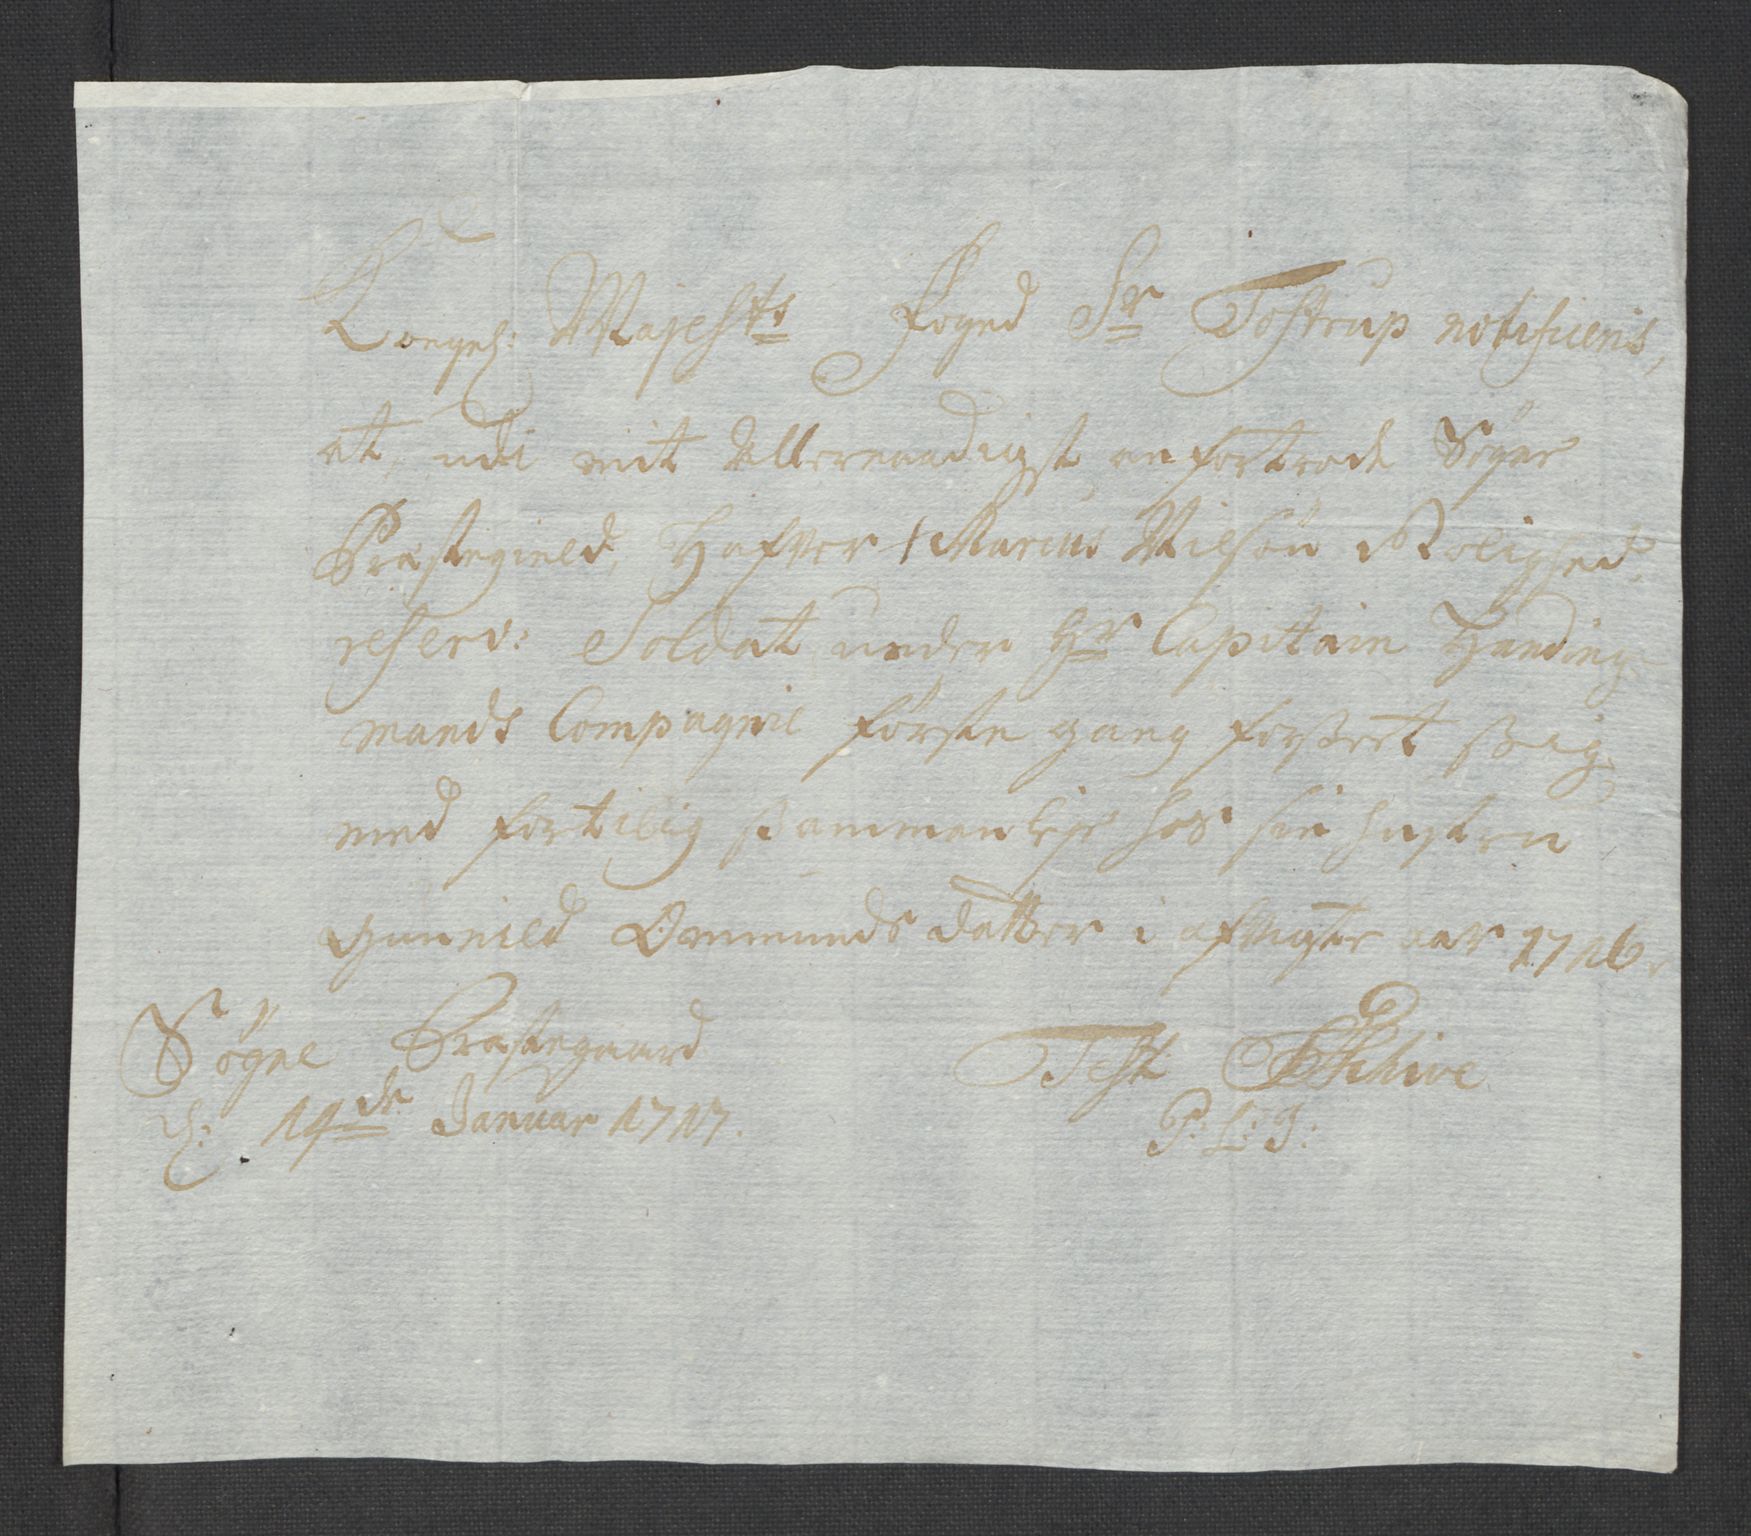 Kongel: Majests Foged Sr Tostrup notificeris,
at, udi mit Allernaadigst anfortrode Søgne
Præstegield, Hafver Marcus Nilsøn Bolighed
reserv: Soldat under Hr Capitain Handing-
mands Compagnie første gang forseet sig
med fortilig sammenleje hos sin hustru
Gunnild Ommunds datter i afvigte aar 1716.
Søgne Præstegaard
d: 14de Januar 1717.
Test Schive
P: L: J: